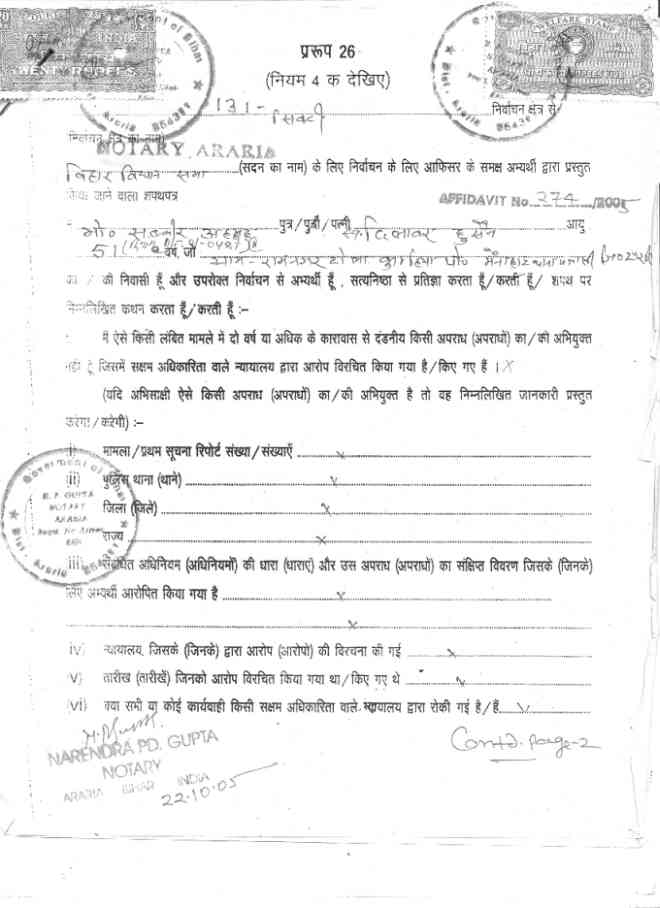 प्ररूप 26
(नियम 4 क देखिए)
131- सिकटी निर्वाचन क्षेत्र से
निर्वाचन क्षेत्र का नाम)
NOTARY, ARARIA
बिहार विधान सभा (सदन का नाम) के लिए निर्वाचन के लिए आफिसर के समक्ष अभ्यर्थी द्वारा प्रस्तुत
किया जाने वाला शपथपत्र
AFFIDAVIT No. 274 /2005
मो० अहमद पुत्र/पुत्री/पत्नी दिलावर हुसैन आयु
51 वर्ष, जो ग्राम- रामनगर टोला पो०
का / की निवासी हूँ और उपरोक्त निर्वाचन से अभ्यर्थी हूँ , सत्यनिष्ठा से प्रतिज्ञा करता हूँ/करती हूँ/ शपथ पर
निम्नलिखित कथन करता हूँ/करती हूँ :–
मैं ऐसे किसी लंबित मामले में दो वर्ष या अधिक के कारावास से दंडनीय किसी अपराध (अपराधों) का/की अभियुक्त
नहीं हूँ जिसमें सक्षम अधिकारिता वाले न्यायालय द्वारा आरोप विरचित किया गया है/किए गए हैं । X
(यदि अभिसाक्षी ऐसे किसी अपराध (अपराधों) का/की अभियुक्त है तो वह निम्नलिखित जानकारी प्रस्तुत
करेगा/करेगी) :–
i) मामला/प्रथम सूचना रिपोर्ट संख्या/संख्याएँ X
ii) पुलिस थाना (थाने) X
जिला (जिले) X
राज्य X
iii) संबंधित अधिनियम (अधिनियमों) की धारा (धाराएं) और उस अपराध (अपराधों) का संक्षिप्त विवरण जिसके (जिनके)
लिए अभ्यर्थी आरोपित किया गया है X
X
iv) न्यायालय, जिसके (जिनके) द्वारा आरोप (आरोपों) की विरचना की गई X
v) तारीख (तारीखें) जिनको आरोप विरचित किया गया था/किए गए थे X
vi) क्या सभी या कोई कार्यवाही किसी सक्षम अधिकारिता वाले न्यायालय द्वारा रोकी गई है/हैं X
NARENDRA PD. GUPTA
NOTARY
ARARIA BIHAR INDIA
22.10.05
Contd. Page-2
Government of Bihar
R. P. GUPTA
NOTARY
ARARIA
Dist. Araria
WELFARE STAMP